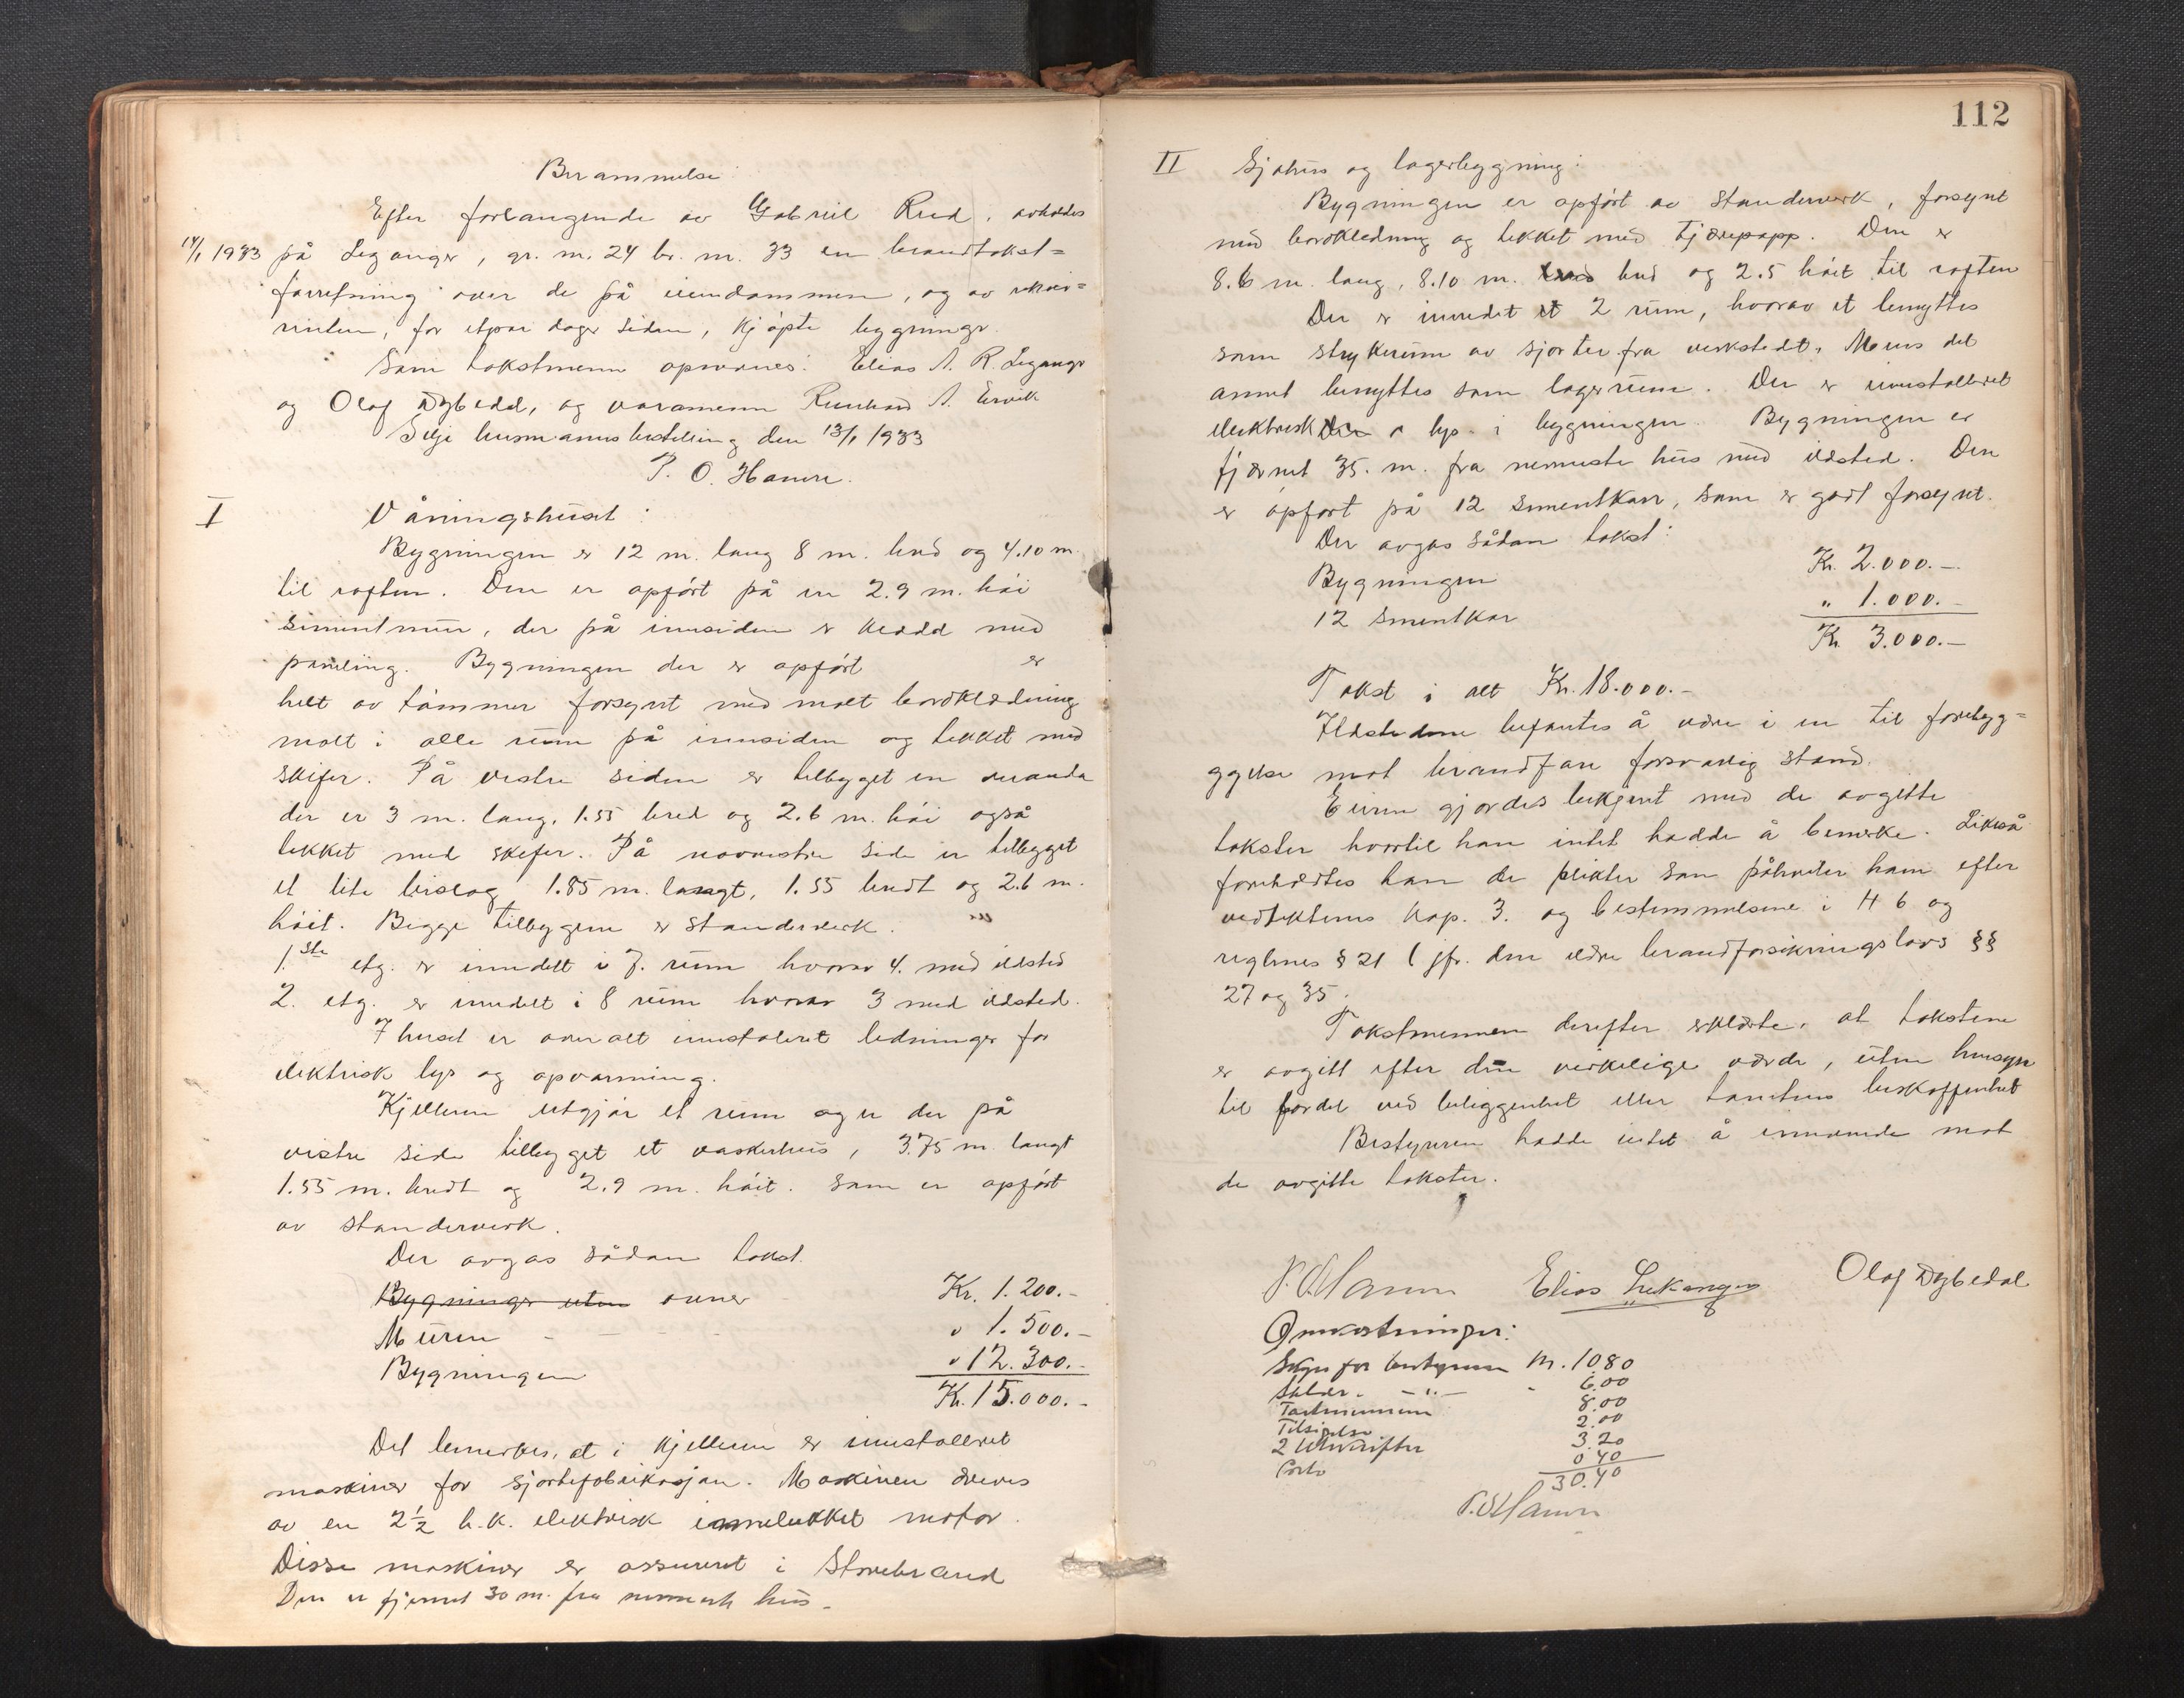 Berammelse
Efter forlangende av Gabriel Rud, avholdes
14/1 1933 på Leganger, gr. nr. 24 br. nr. 33 en brandtakst=
forretning over de på eiendommen, og av rekvi=
rinten, for etpar dager siden, kjøpte bygninger.
Som takstmenn opnevnes: Elias A. R. Leganger
og Olaf Dybedal, og varamenn Reinhard A. Ervik
Selje lensmannsbestilling den 13/1 1933
P. O. Hamre.
I Våningshuset:
Bygningen er 12 m. lang 8 m. bred og 4.10 m.
til raften. Den er opført på en 2.9 m. høi
sementmur, der på innsiden er kledd med
paneling. Bygningen der er opført er
helt av tømmer forsynt med malt bordkledning
malt i alle rum på innsiden og tekket med
skifer. På vestre siden er tilbygget en veranda
der er 3 m. lang, 1.55 bred og 2.6 m. høi også
tekket med skifer. På nordvestre side er tilbygget
et lite bislag 1.85 m. langt, 1.55 bredt og 2.6 m.
høit. Begge tilbygene er standerverk.
1.ste etg. er inndelt i 7. rum hvorav 4. med ildsted
2. etg. er inndelt i 8 rum hvorav 3 med ildsted.
I huset er overalt innstaleret ledninger for
elektrisk lys og opvarming.
Kjelleren utgjør et rum og er der på
vestre side tilbygget et vaskerhus, 3.75 m. langt
1.55 m. bredt og 2.9 m. høit. som er opført
av standerverk.
Der avgas sådan takst.
Bygninger uten ovner Kr. 1.200.-
Muren - - - " 1.500.-
Bygningen " 12.300.-
Kr. 15.000.-
Det bemerkes, at i kjelleren er innstalleret
maskiner for skjortefabrikasjon. Maskinen drives
av en 2½ h.k. elektrisk innelukket motor.
Disse maskiner er assureret i Storebrand
Den er fjernet 30 m. fra nermeste hus.
112
II Sjøhus og lagerbygning:
Bygningen er opført av standerverk, forsynt
med bordkledning og tekket med tjærepapp. Den er
8.6 m. lang, 8.10 m. bred og 2.5 høit til raften
Der er innredet et 2 rum, hvorav et benyttes
som strykerum av skjorter fra verkstedt. Mens det
annet benyttes som lagerrum. Der er innstalleret
elektrisk lys i bygningen. Bygningen er
fjærnet 35. m. fra nermeste hus med ildsted. Den
er opført på 12 sementkar, som er godt forsynt.
Der avgas sådan takst:
Bygningen Kr. 2.000.-
12 sementkar " 1.000.-
Kr. 3.000.-
Takst i alt Kr. 18.000.-
Ildstedene befantes å være i en til forebyg=
ggelse mot brandfare forsvarlig stand.
Eieren gjordes bekjent med de avgitte
takster hvortil han intet hadde å bemerke. Likeså
foreholdtes han de plikter som påhviler ham efter
vedtektenes kap. 3. og bestemmelsene i H 6 og
reglenes § 21 (jfr. den eldre brandforsikringslovs §§
27 og 35.
Takstmennen derefter erklærte, at takstene
er avgitt efter den virkelige værdi, uten hensyn
til fordel ved beliggenhet eller tomtens beskaffenhet
Bestyreren hadde intet å innvende mot
de avgitte takster.
P. O. Hamre Elias Leikanger Olaf Dybedal
Omkostninger:
Skyss for bestyreren Kr. 10 80
Salær - " - - 6.00
Takstmennene 8.00
Tilsigelse 2.00
2 Utskrifter 3.20
Porto 0 40
30.40
P. O. Hamre